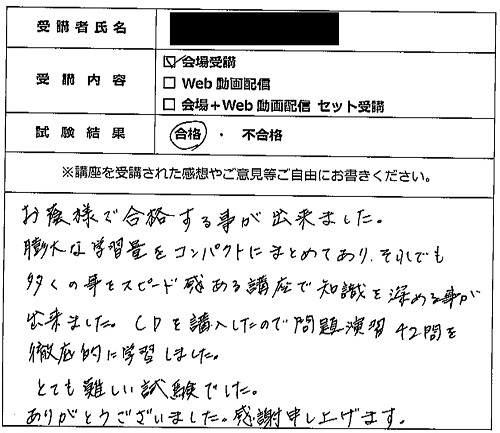 受講者氏名
受講内容
☑会場受講
□Web動画配信
□会場+Web動画配信 セット受講
試験結果
合格 ・ 不合格
※講座を受講された感想やご意見等ご自由にお書きください。
お陰様で合格する事が出来ました。
膨大な学習量をコンパクトにまとめてあり、それでも
多くの事をスピード感ある講座で知識を深める事が
出来ました。CDを購入したので問題演習42問を
徹底的に学習しました。
とても難しい試験でした。
ありがとうございました。感謝申し上げます。